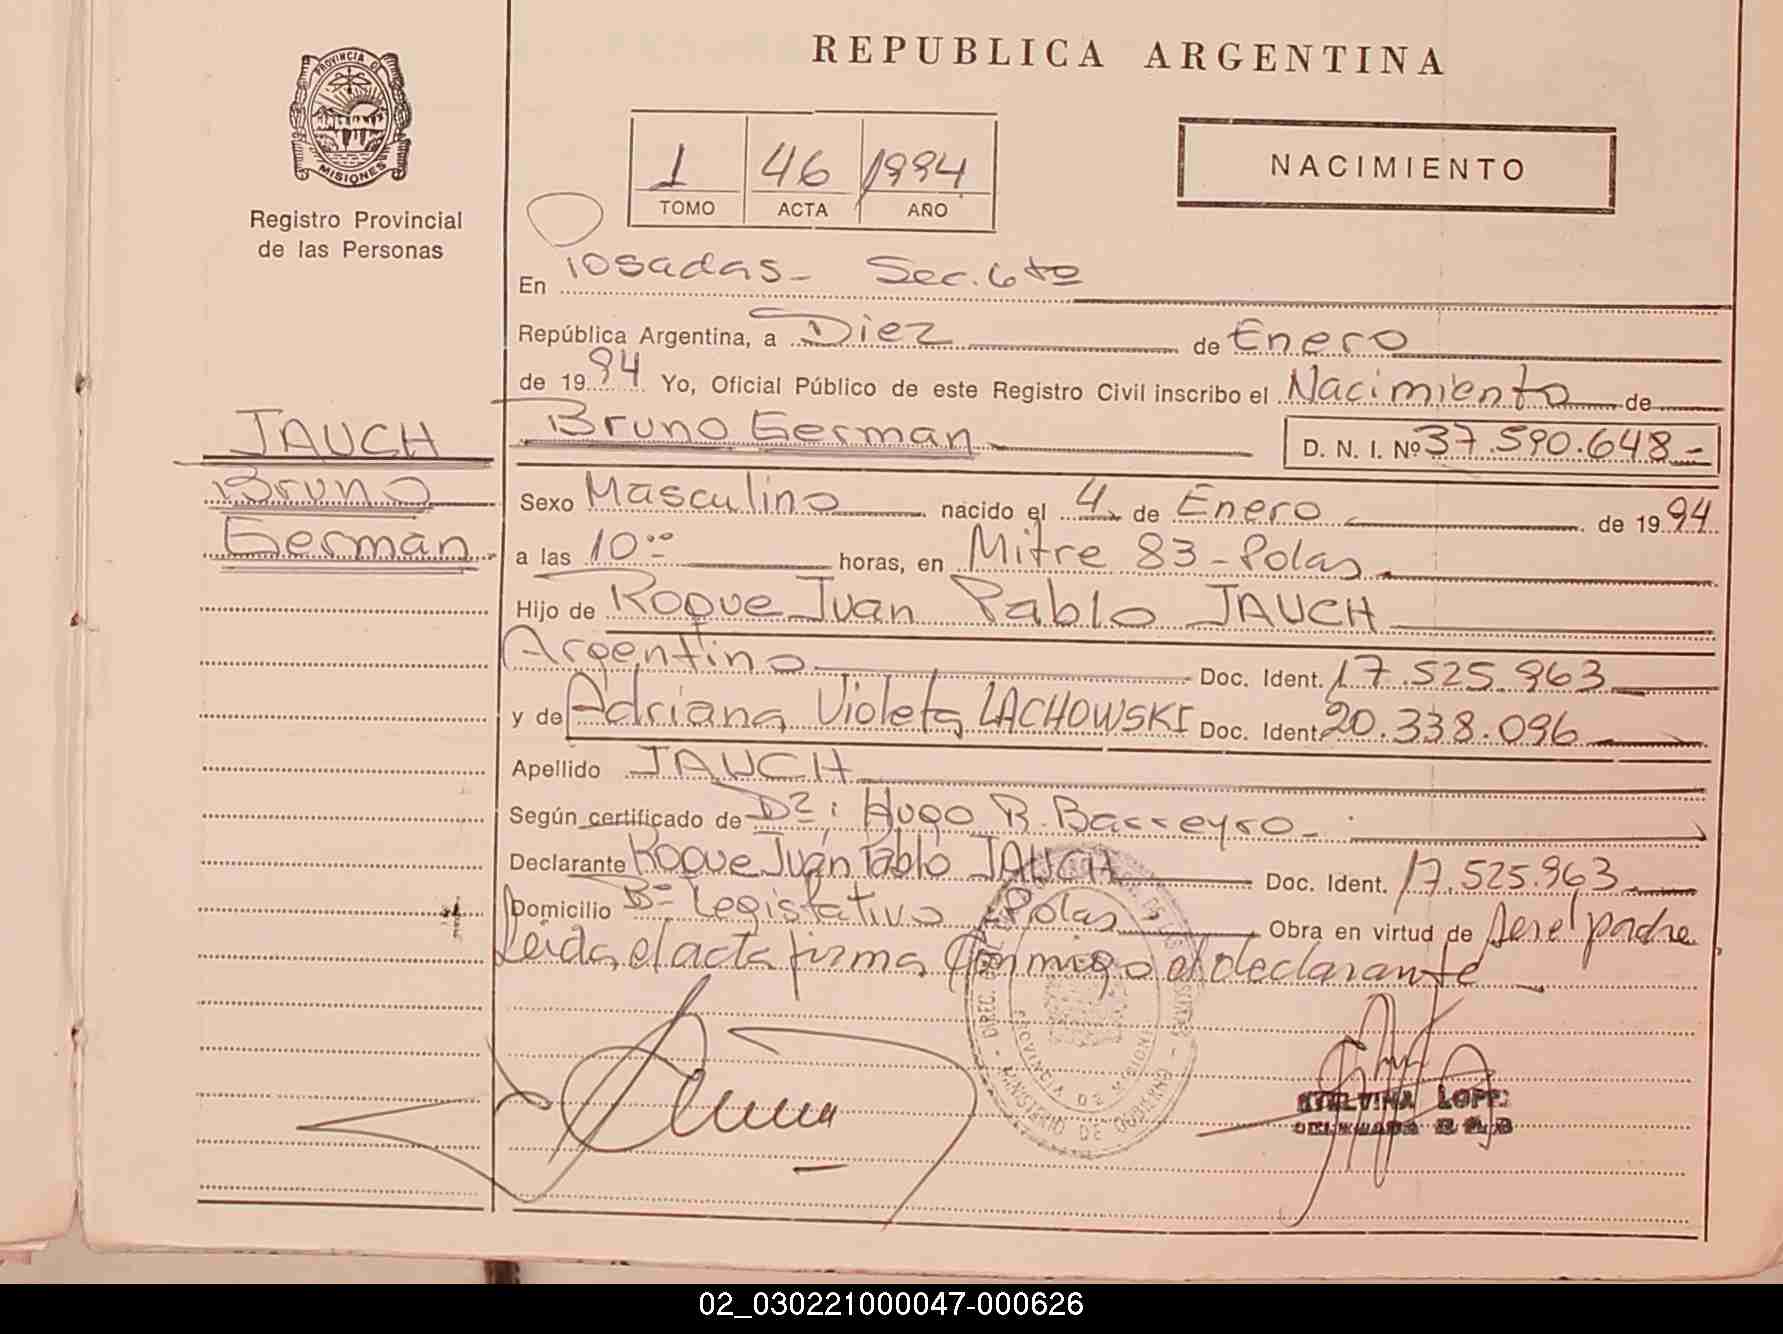 REPUBLICA ARGENTINA
PROVINCIA D
MISIONES
Registro Provincial
de las Personas
1 46 1994
TOMO ACTA AÑO
NACIMIENTO
En Posadas - Sec. 6ta
República Argentina, a Diez de Enero
de 1994 Yo, Oficial Público de este Registro Civil inscribo el Nacimiento de
JAUCH
Bruno
German
Bruno German D. N. I. Nº 37.590.648-
Sexo Masculino nacido el 4 de Enero de 1994
a las 10:00 horas, en Mitre 83 - Pdas
Hijo de Roque Juan Pablo JAUCH
Argentino Doc. Ident. 17.525.963
y de Adriana Violeta LACHOWSKI Doc. Ident. 20.338.096
Apellido JAUCH
Según certificado de Dr: Hugo R. Barreyro-
Declarante Roque Juan Pablo JAUCH Doc. Ident. 17.525.963
Domicilio Bº Legislativo Pdas Obra en virtud de ser el padre
Leida el acta firma conmigo el declarante
PROVINCIA DE MISIONES
MINISTERIO DE GOBIERNO
02_030221000047-000626